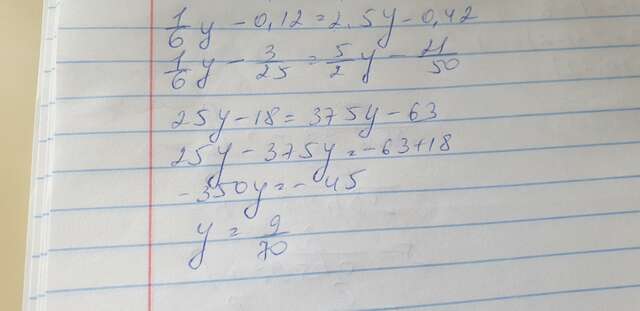 1/6 y - 0,12 = 2,5y - 0,42
1/6 y - 3/25 = 5/2 y - 21/50
25y - 18 = 375y - 63
25y - 375y = -63 + 18
-350y = -45
y = 9/70